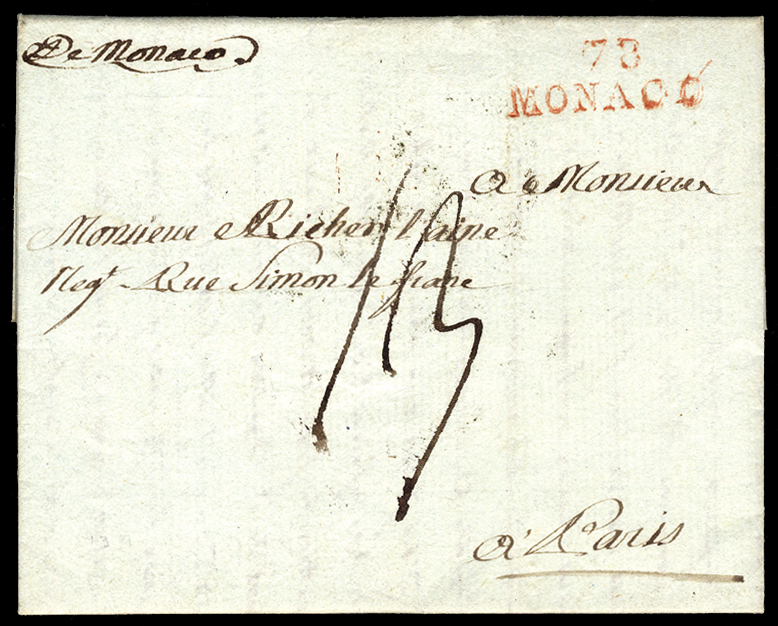 De Monaco
78
MONACO
A Monsieur
Monsieur Richer l'aine
Negt. Rue Simon le franc
13
a Paris